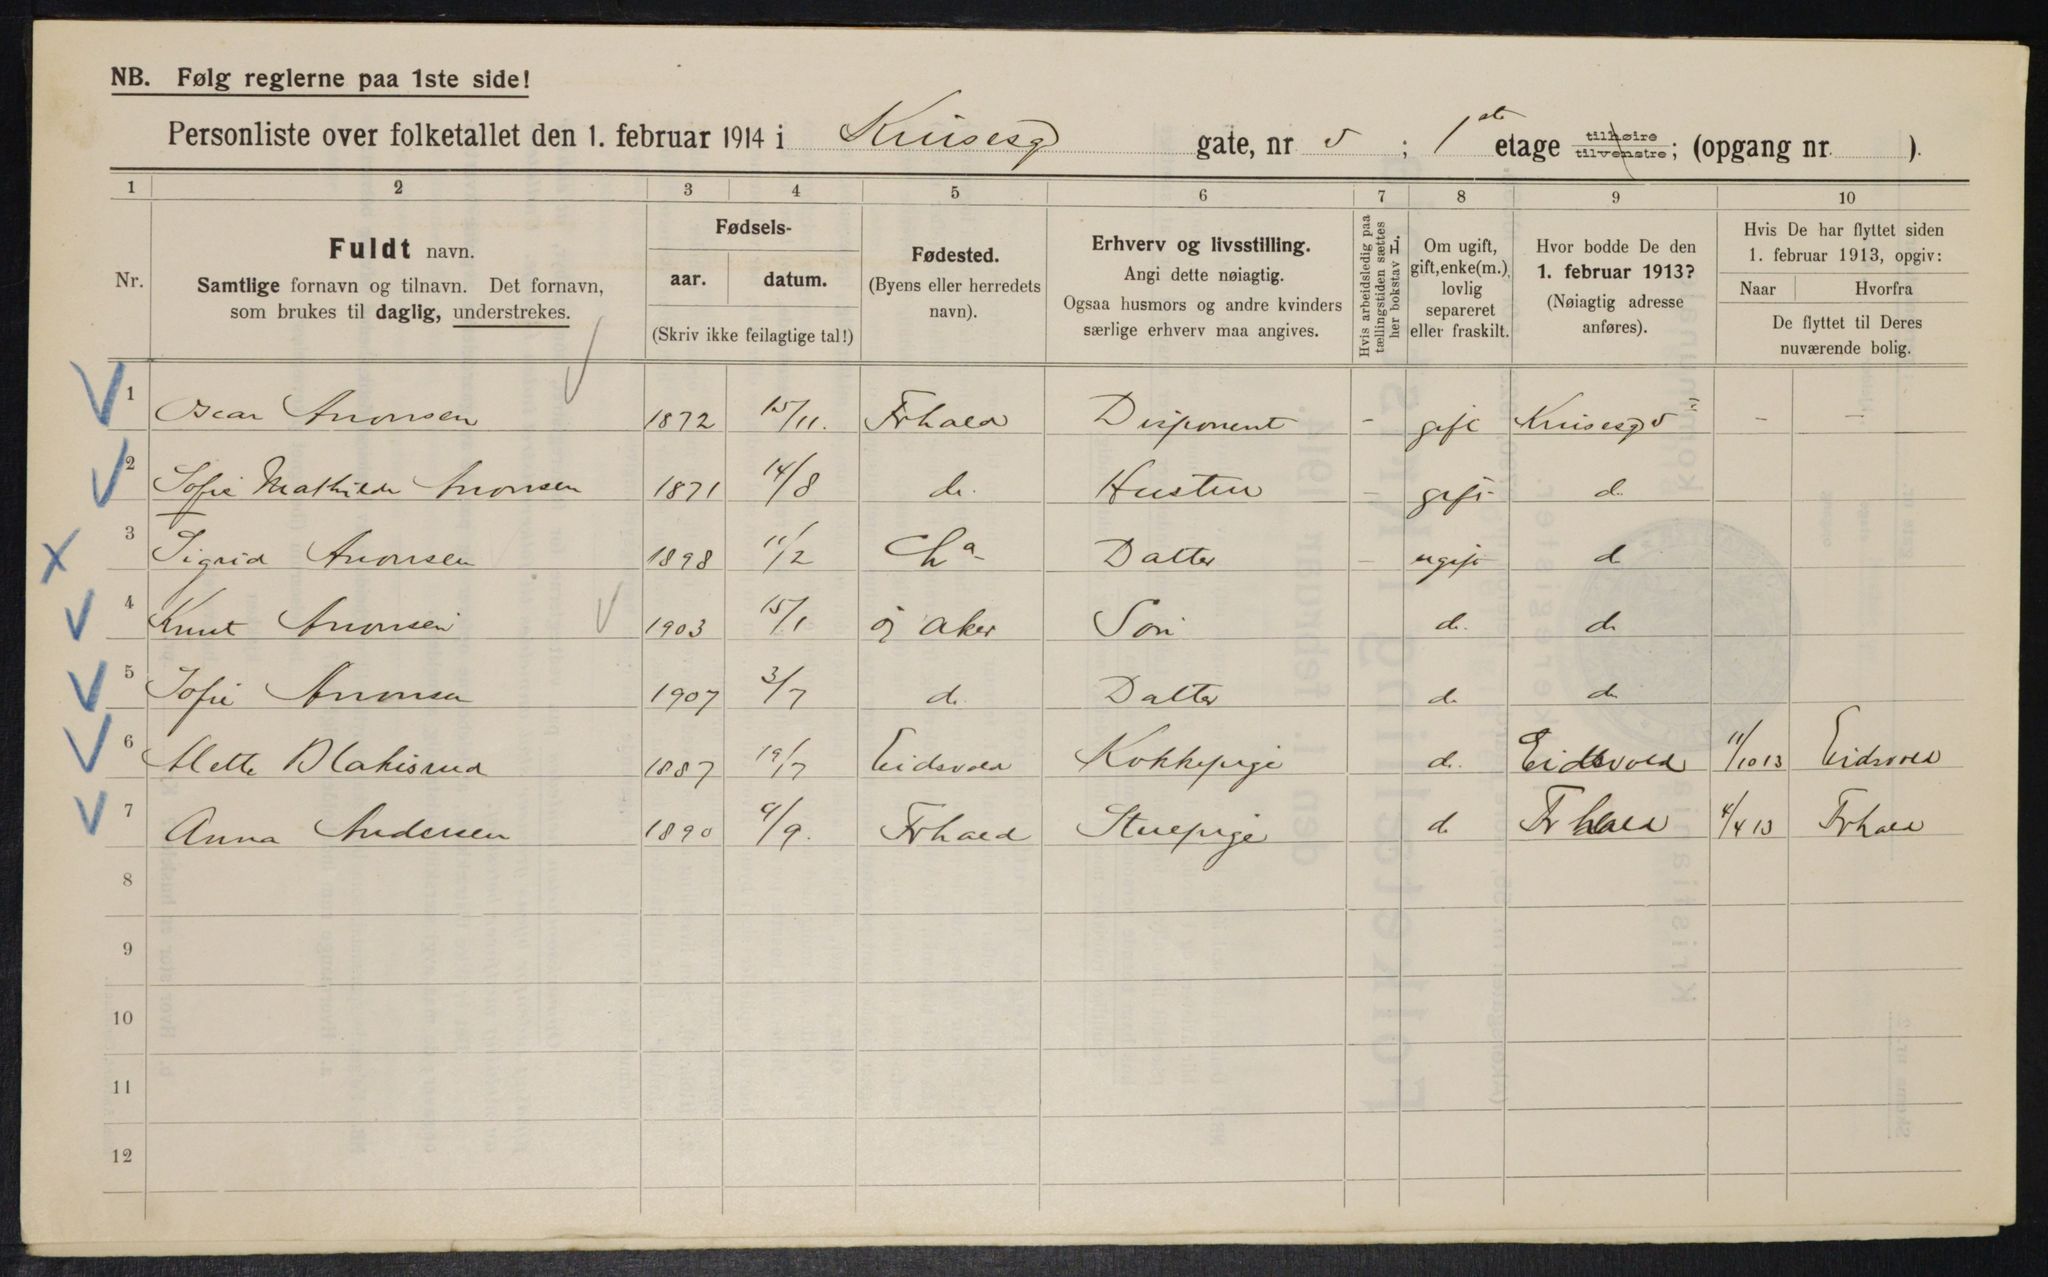 NB. Følg reglerne paa 1ste side!
Personliste over folketallet den 1. februar 1914 i Kruisesg gate, nr 5 ; 1ste etage tilhøire tilvenstre; (opgang nr. ).
1 2 3 4 5 6 7 8 9 10
Nr.
Fuldt navn.
Samtlige fornavn og tilnavn. Det fornavn,
som brukes til daglig, understrekes.
Fødsels-
aar. datum.
(Skriv ikke feilagtige tal!)
Fødested.
(Byens eller herredets
navn).
Erhverv og livsstilling.
Angi dette nøiagtig.
Ogsaa husmors og andre kvinders
særlige erhverv maa angives.
Hvis arbeidsledig paa
tællingstiden sættes
her bokstav H.
Om ugift,
gift, enke(m.),
lovlig
separeret
eller fraskilt.
Hvor bodde De den
1. februar 1913?
(Nøiagtig adresse
anføres).
Hvis De har flyttet siden
1. februar 1913, opgiv:
Naar Hvorfra
De flyttet til Deres
nuværende bolig.
1 Oscar Aronsen 1872 15/11. Frhald Disponent - gift Kruisesg 5 - -
2 Sofie Mathilde Aronsen 1871 14/8 do. Hustru - gift do
3 Sigrid Aronsen 1898 11/2 Chа Datter - ugift do
4 Knut Aronsen 1903 15/1 Ø Aker Søn do. do
5 Sofie Aronsen 1907 3/7 do. Datter do do
6 Mette Blakisrud 1887 19/7 Eidsvold Kokkepige do. Eidsvold 11/10 13 Eidsvold
7 Anna Andersen 1890 9/9. Frhald Stuepige do Frhald 4/4 13 Frhald
8
9
10
11
12